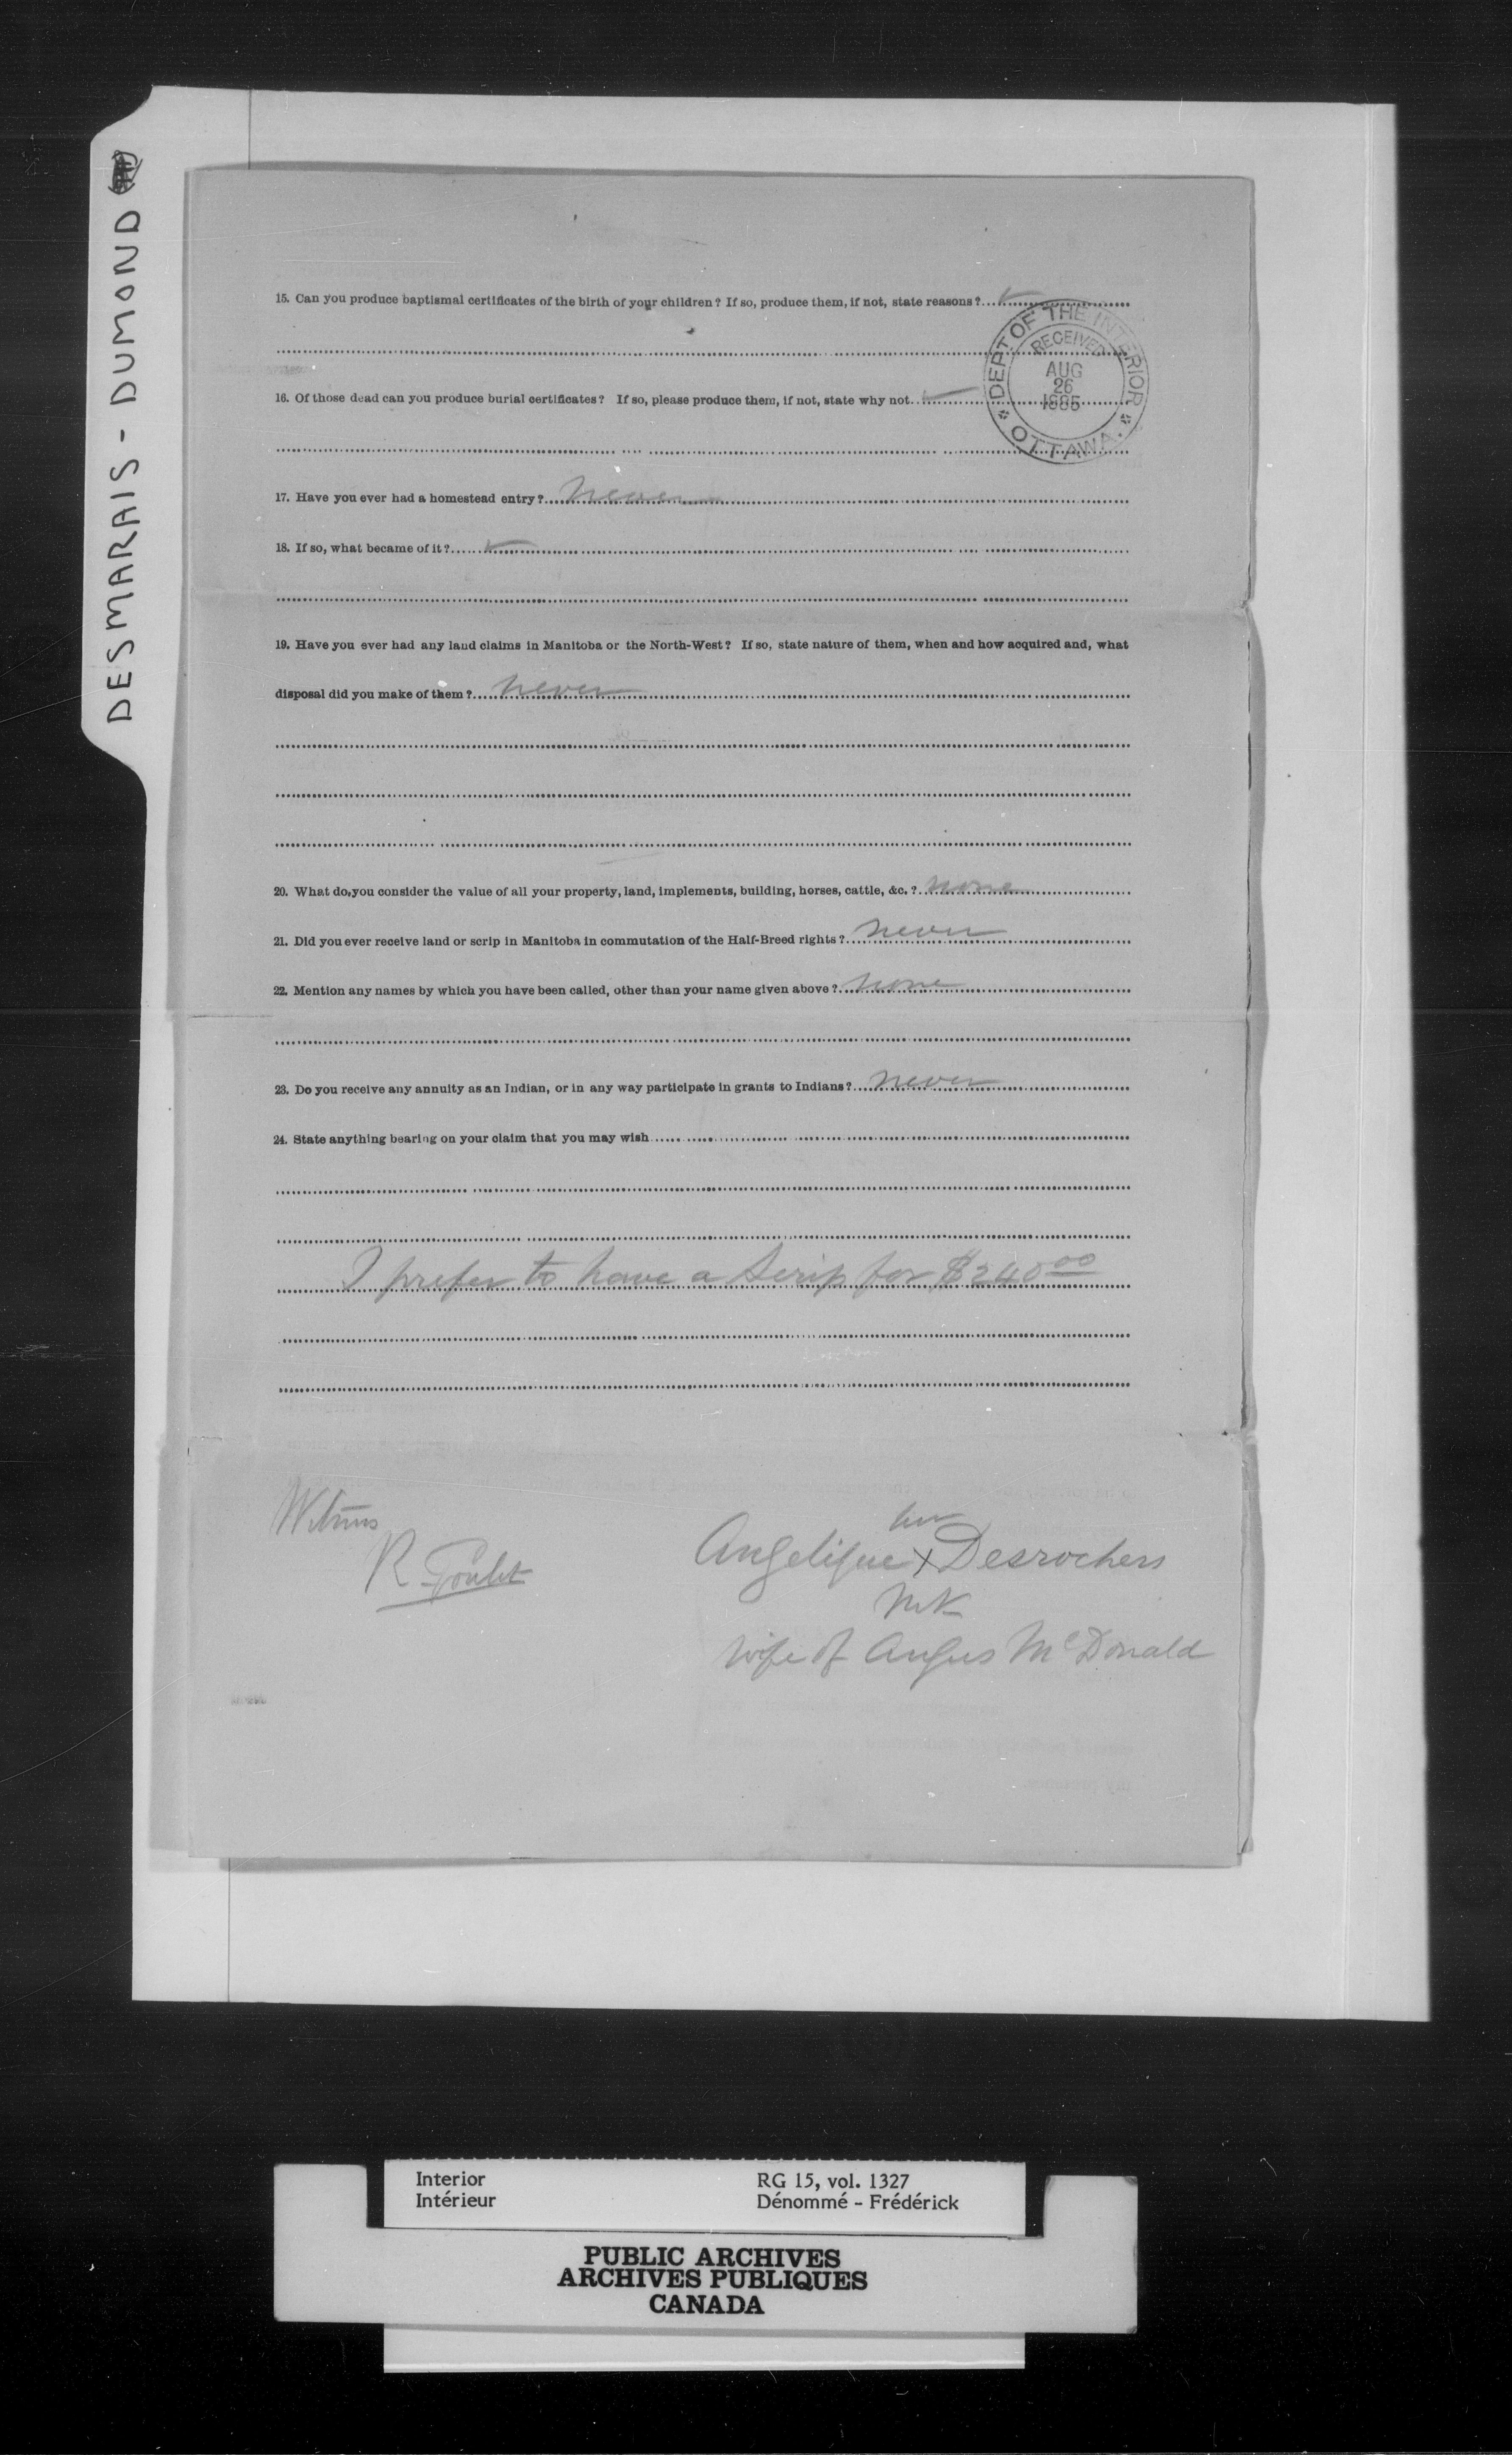 DESMARAIS - DUMOND
15. Can you produce baptismal certificates of the birth of your children? If so, produce them, if not, state reasons?
DEPT. OF THE INTERIOR
RECEIVED
AUG
26
1885
OTTAWA.
16. Of those dead can you produce burial certificates? If so, please produce them, if not, state why not
17. Have you ever had a homestead entry? Never
18. If so, what became of it?
19. Have you ever had any land claims in Manitoba or the North-West? If so, state nature of them, when and how acquired and, what
disposal did you make of them? Never
20. What do you consider the value of all your property, land, implements, building, horses, cattle, &c.? none
21. Did you ever receive land or scrip in Manitoba in commutation of the Half-Breed rights? never
22. Mention any names by which you have been called, other than your name given above? none
23. Do you receive any annuity as an Indian, or in any way participate in grants to Indians? never
24. State anything bearing on your claim that you may wish
I prefer to have a Scrip for $240 00
Witness
R Goulet
her
Angelique X Desrochers
Mk
wife of Angus McDonald
Interior
Intérieur
RG 15, vol. 1327
Dénommé - Frédérick
PUBLIC ARCHIVES
ARCHIVES PUBLIQUES
CANADA